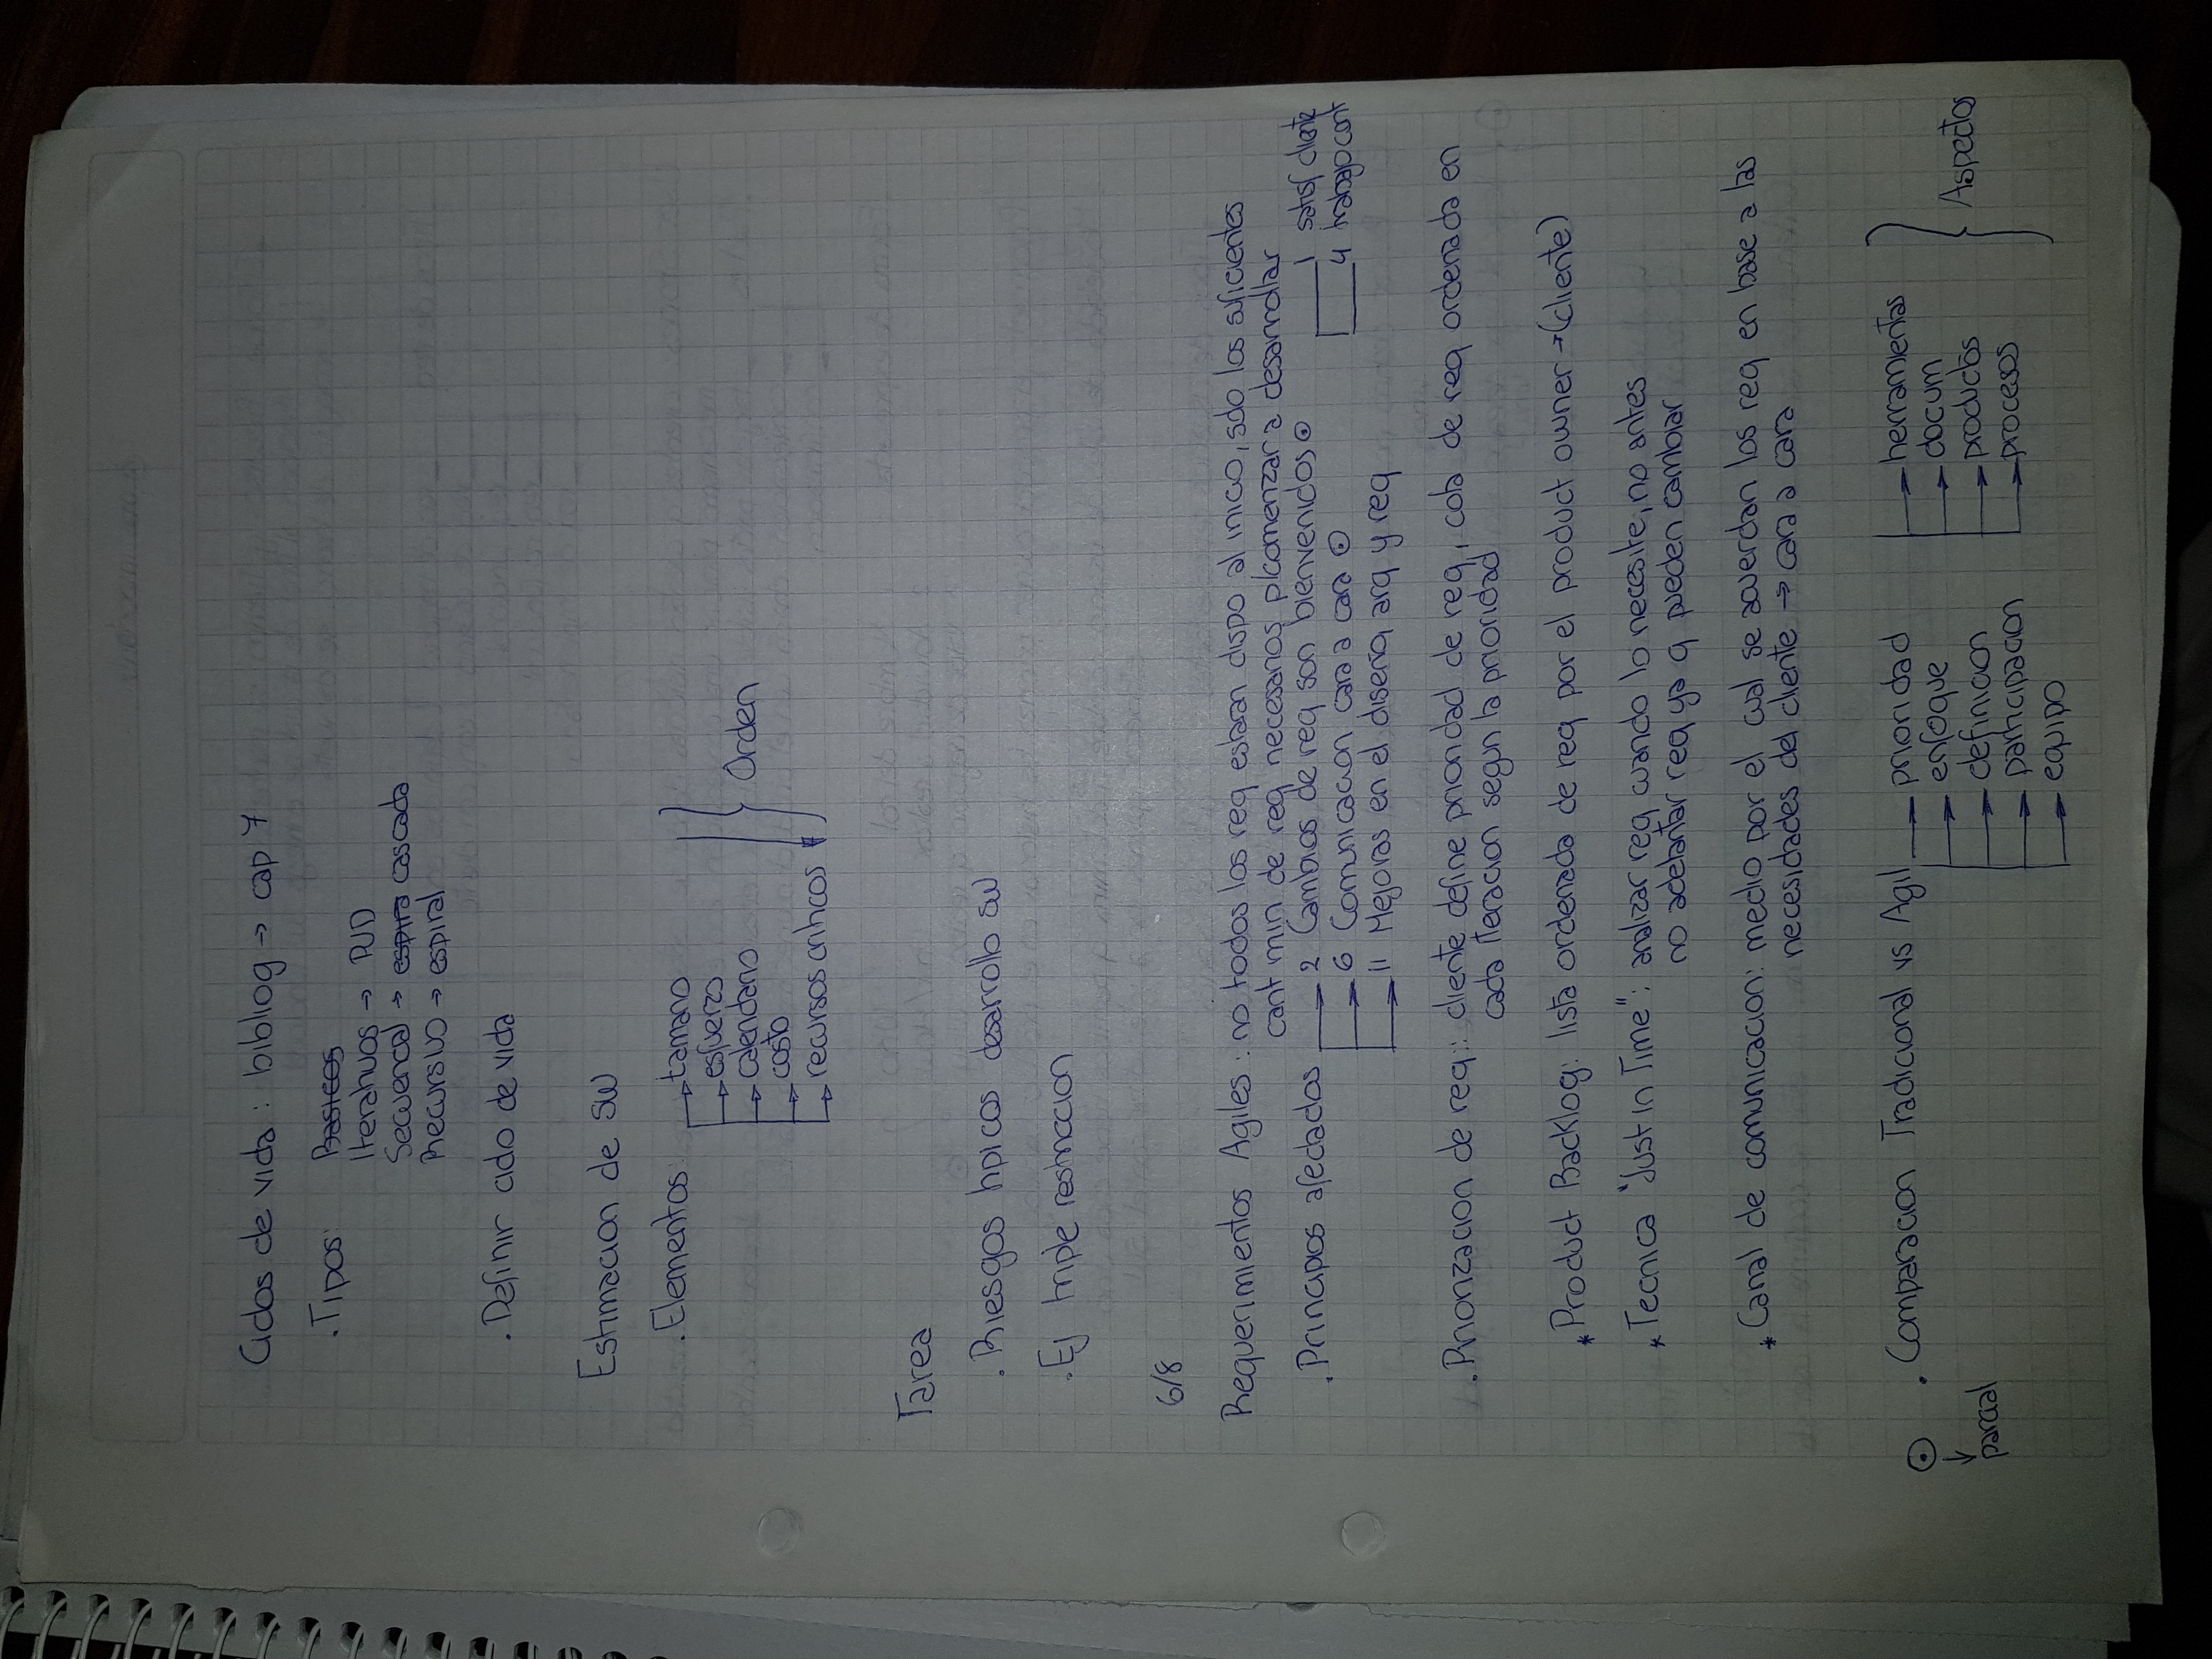 Ciclos de vida : bibliog → cap 7
. Tipos: Basicos
Iterativos → PUD
Secuencial → espira cascada
Recursivo → espiral
. Definir ciclo de vida
Estimacion de SW
. Elementos: tamano
esfuerzo
calendario
costo
recursos criticos
Orden
Tarea
. Riesgos tipicos desarrollo SW
. Ej triple restriccion
6/8
Requerimientos Agiles : no todos los req estaran dispo al inicio, solo los suficientes
cant min de req necesarios p/comenzar a desarrollar
. Principios afectados → 2 Cambios de req son bienvenidos ⊙ 1 satisf cliente
→ 6 Comunicacion cara a cara ⊙ 4 trabajo conf
→ 11 Mejoras en el diseño, arq y req
. Priorizacion de req: cliente define prioridad de req, cola de req ordenada en
cada iteracion segun la prioridad
* Product Backlog: lista ordenada de req por el product owner → (cliente)
* Tecnica "Just in Time": analizar req cuando lo necesite, no antes
no adelantar req ya q pueden cambiar
* Canal de comunicacion: medio por el cual se acuerdan los req en base a las
necesidades del cliente → cara a cara
⊙ . Comparacion Tradicional vs Agil → prioridad → herramientas
→ enfoque → docum
→ definicion → productos
→ participacion → procesos
→ equipo
Aspectos
↓
parcial